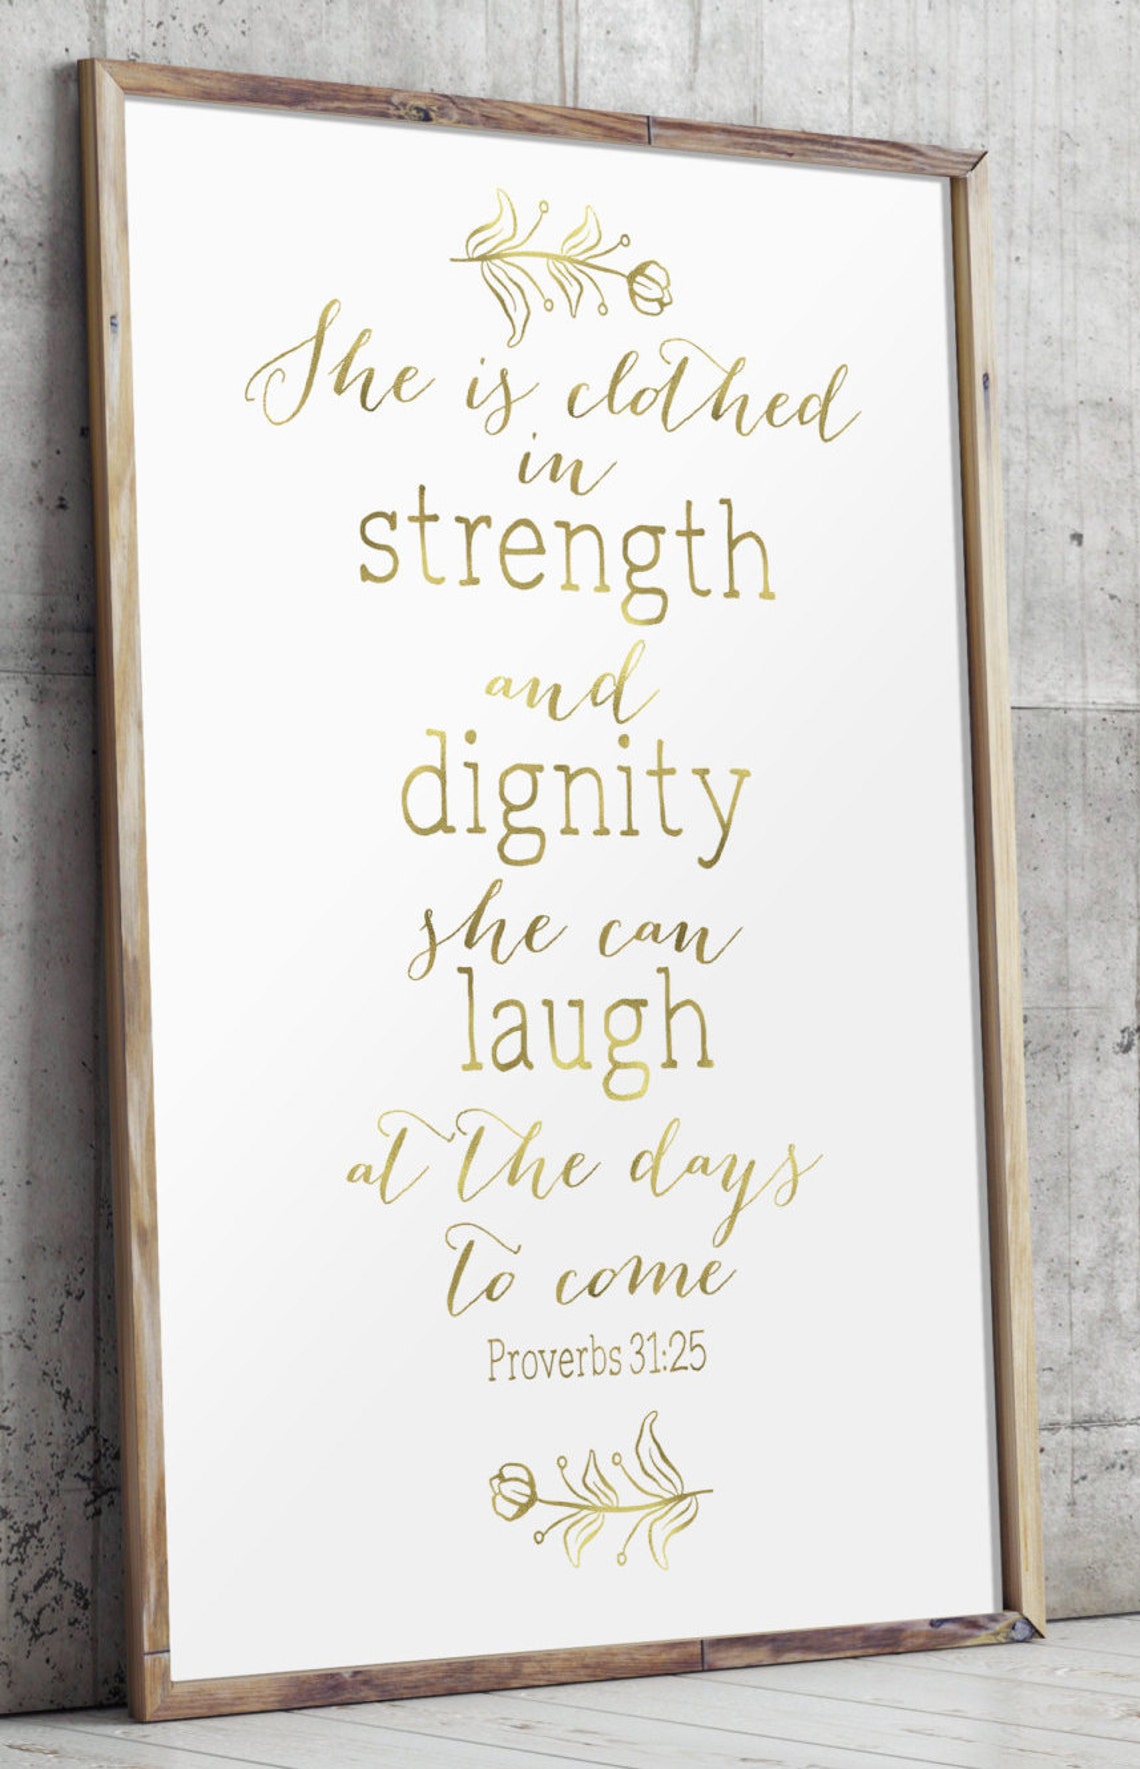 She is clothed
in
strength
and
dignity
she can
laugh
at the days
to come
Proverbs 31:25